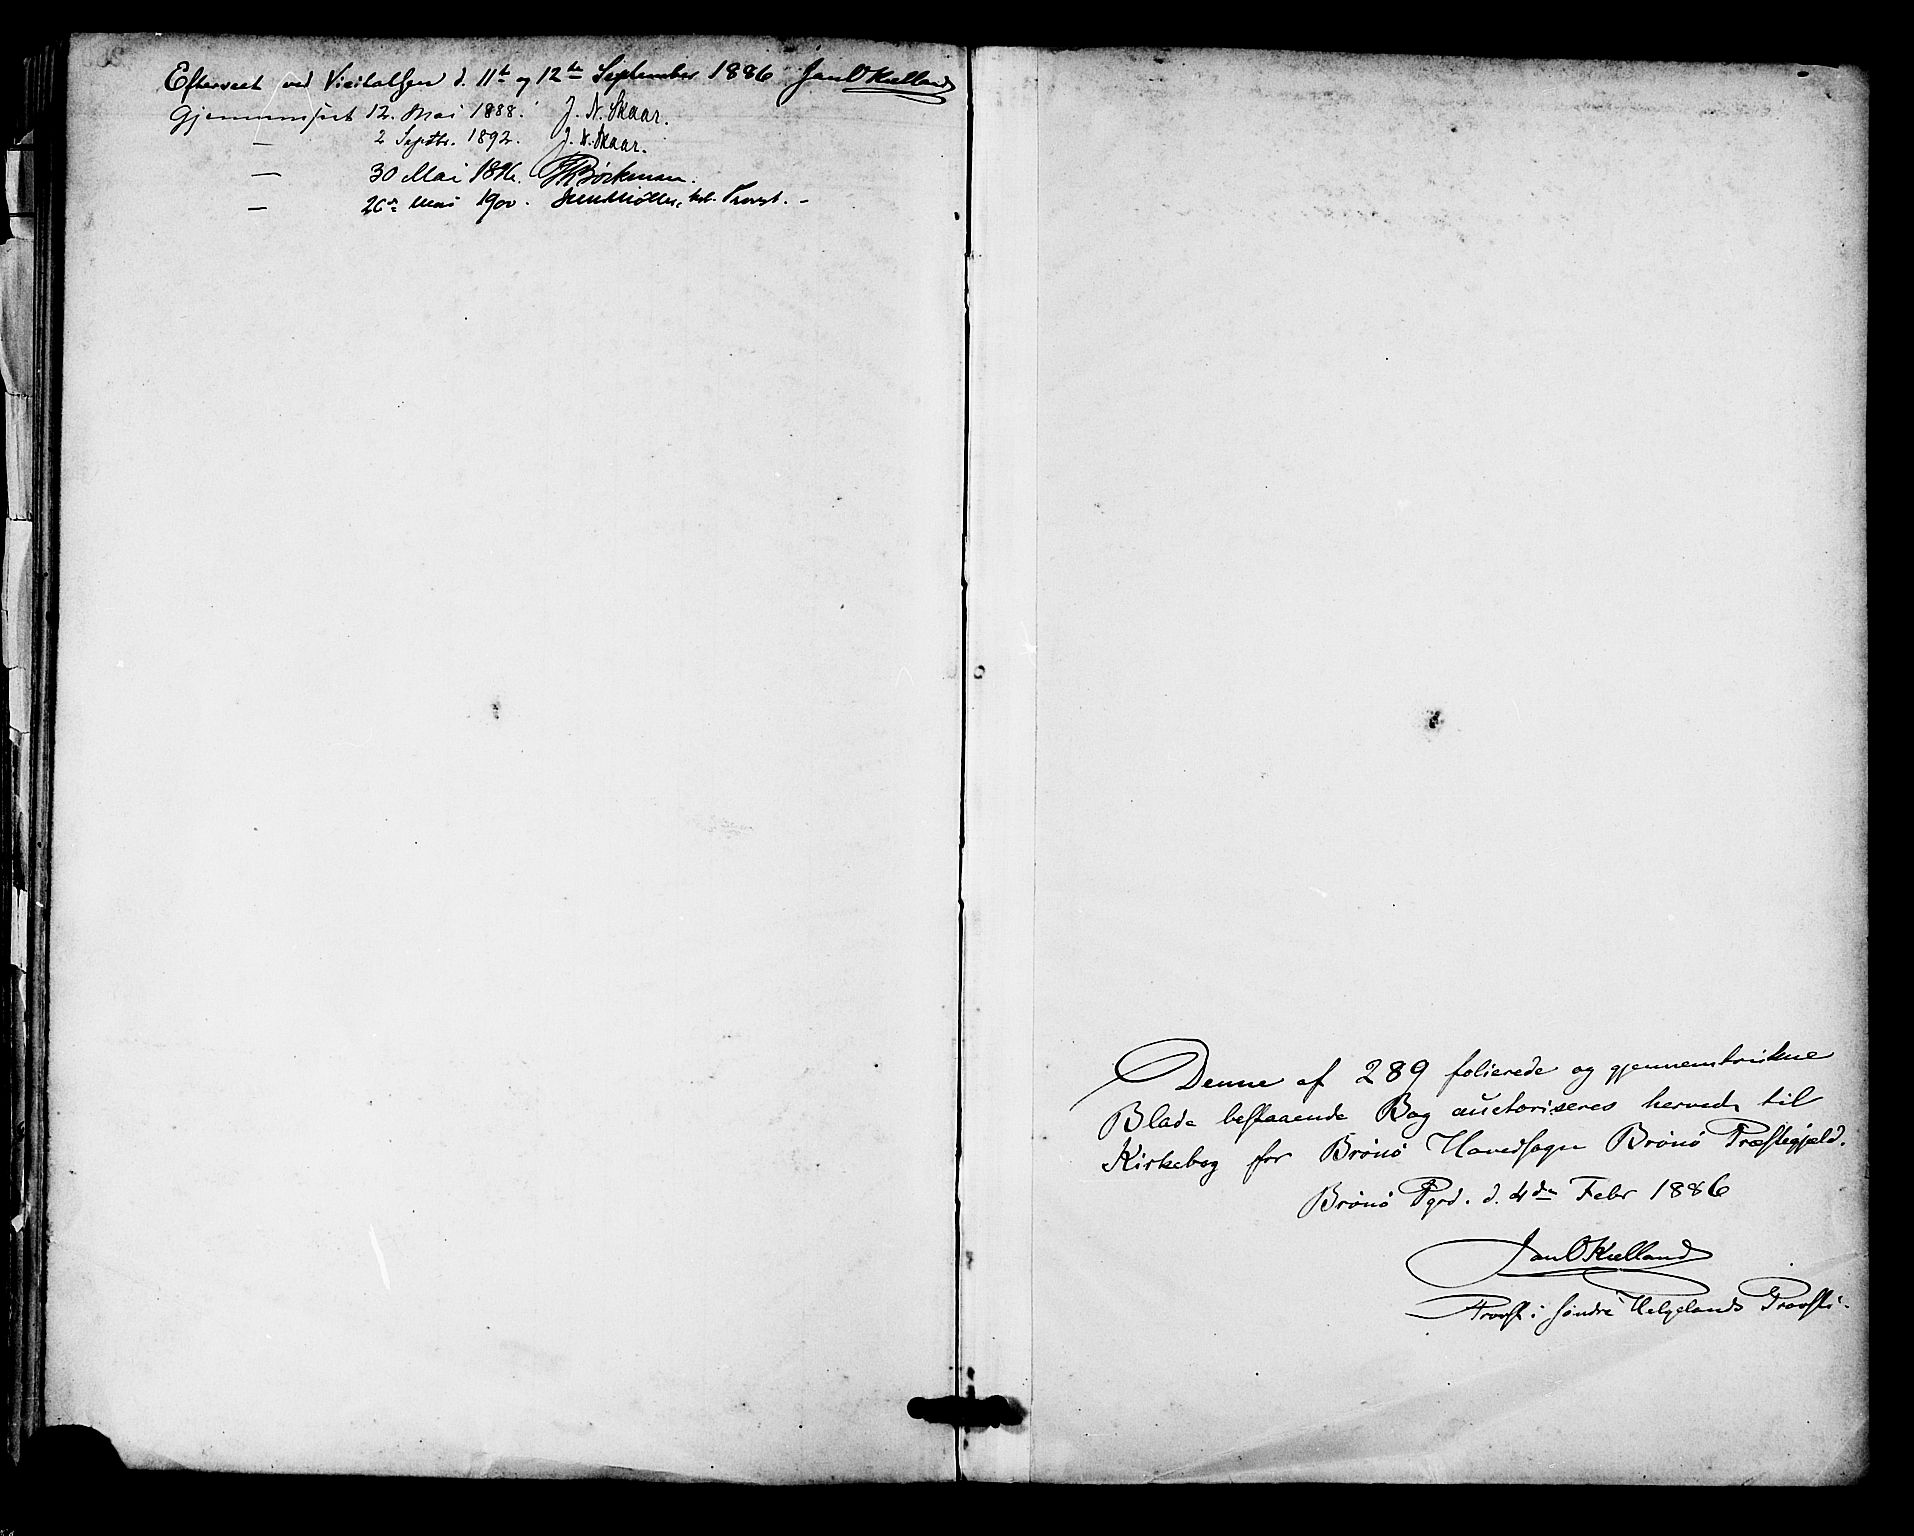 Efterseet ved Visitatsen d. 11te og 12te September 1886 Jan O Kielland
Gjennemseet 12. Mai 1888. J. N. Skaar.
— 2 Septbr. 1892. J. N. Skaar.
— 30 Mai 1896. Bøckman.
— Mai 1900. Provst. —
Denne af 289 folierede og gjennemtrukne
Blade bestaaende Bog auctoriseres herved til
Kirkebog for Brønø Hovedsogn Brønø Præstegjæld.
Brønø Pgrd. d. 4de Febr 1886
Jan O Kielland
Provst i søndre Helgelands Provsti.